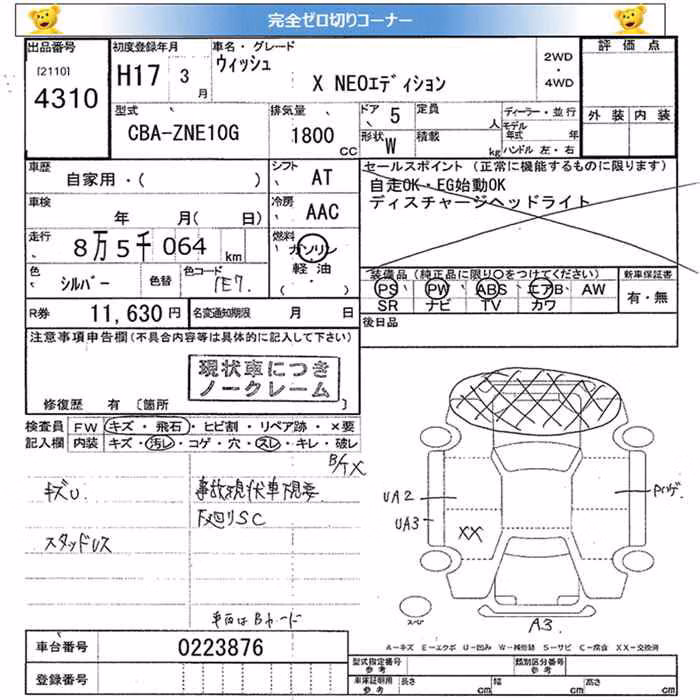 完全ゼロ切りコーナー
出品番号 初度登録年月 車名・グレード 2WD・4WD 評価点
[2110] 4310 H17 3月 ウィッシュ
X NEOエディション
外装 内装
型式 CBA-ZNE10G 排気量 1800 CC ドア 5 定員 人 ディーラー・並行
形状 W 積載 kg モデル年式 年
ハンドル 左・右
車歴 自家用・( ) シフト AT セールスポイント (正常に機能するものに限ります)
自走OK・EG始動OK
ディスチャージヘッドライト
車検 年 月( 日) 冷房 AAC
走行 8万5千064 km 燃料 ガソリン
軽油
( ・ )
色 シルバー 色替 色コード 1E7.
装備品 (純正品に限り○をつけてください) 新車保証書
PS PW ABS エアB AW 有・無
SR ナビ TV カワ
R券 11,630円 名変通知期限 月 日 後日品
注意事項申告欄 (不具合内容等は具体的に記入して下さい)
現状車につき
ノークレーム
修復歴 有 [箇所 ]
検査員 FW キズ・飛石・ヒビ割・リペア跡・×要
記入欄 内装 キズ・汚レ・コゲ・穴・スレ・キレ・破レ
B/TX
キズU 事故現状車現要
下廻りSC
スタッドレス
UA2
UA3
XX
車両はBヤード
スペア
A3
A-キズ E-エクボ U-凹み W-補修跡 S-サビ C-腐食 XX-交換済
車台番号 0223876
型式指定番号 参考 類別区分番号 参考
登録番号 車庫証明用 参考 長さ cm 幅 cm 高さ cm